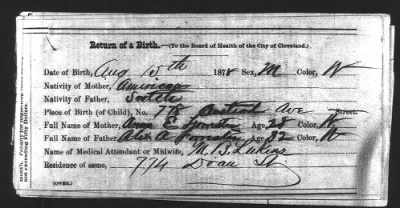 Return of a Birth.—(To the Board of Health of the City of Cleveland.)
Date of Birth, Aug 15th 1878 Sex, M Color, W
Nativity of Mother, American
Nativity of Father,
Place of Birth (of Child), No. 778 Central Ave Street.
Full Name of Mother, Anna E Age, 28 Color, W
Full Name of Father, Alex A Age, 32 Color, W
Name of Medical Attendant or Midwife, M. B. Lukens
Residence of same, 774 St
(OVER.)